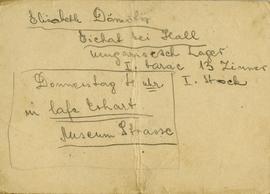 Elisabeth
Eichat bei Hall
ungarisch Lager
I. barac 13 Zimmer
Donnerstag uhr I. Stock
in Cafe Erhart
Museum Strasse